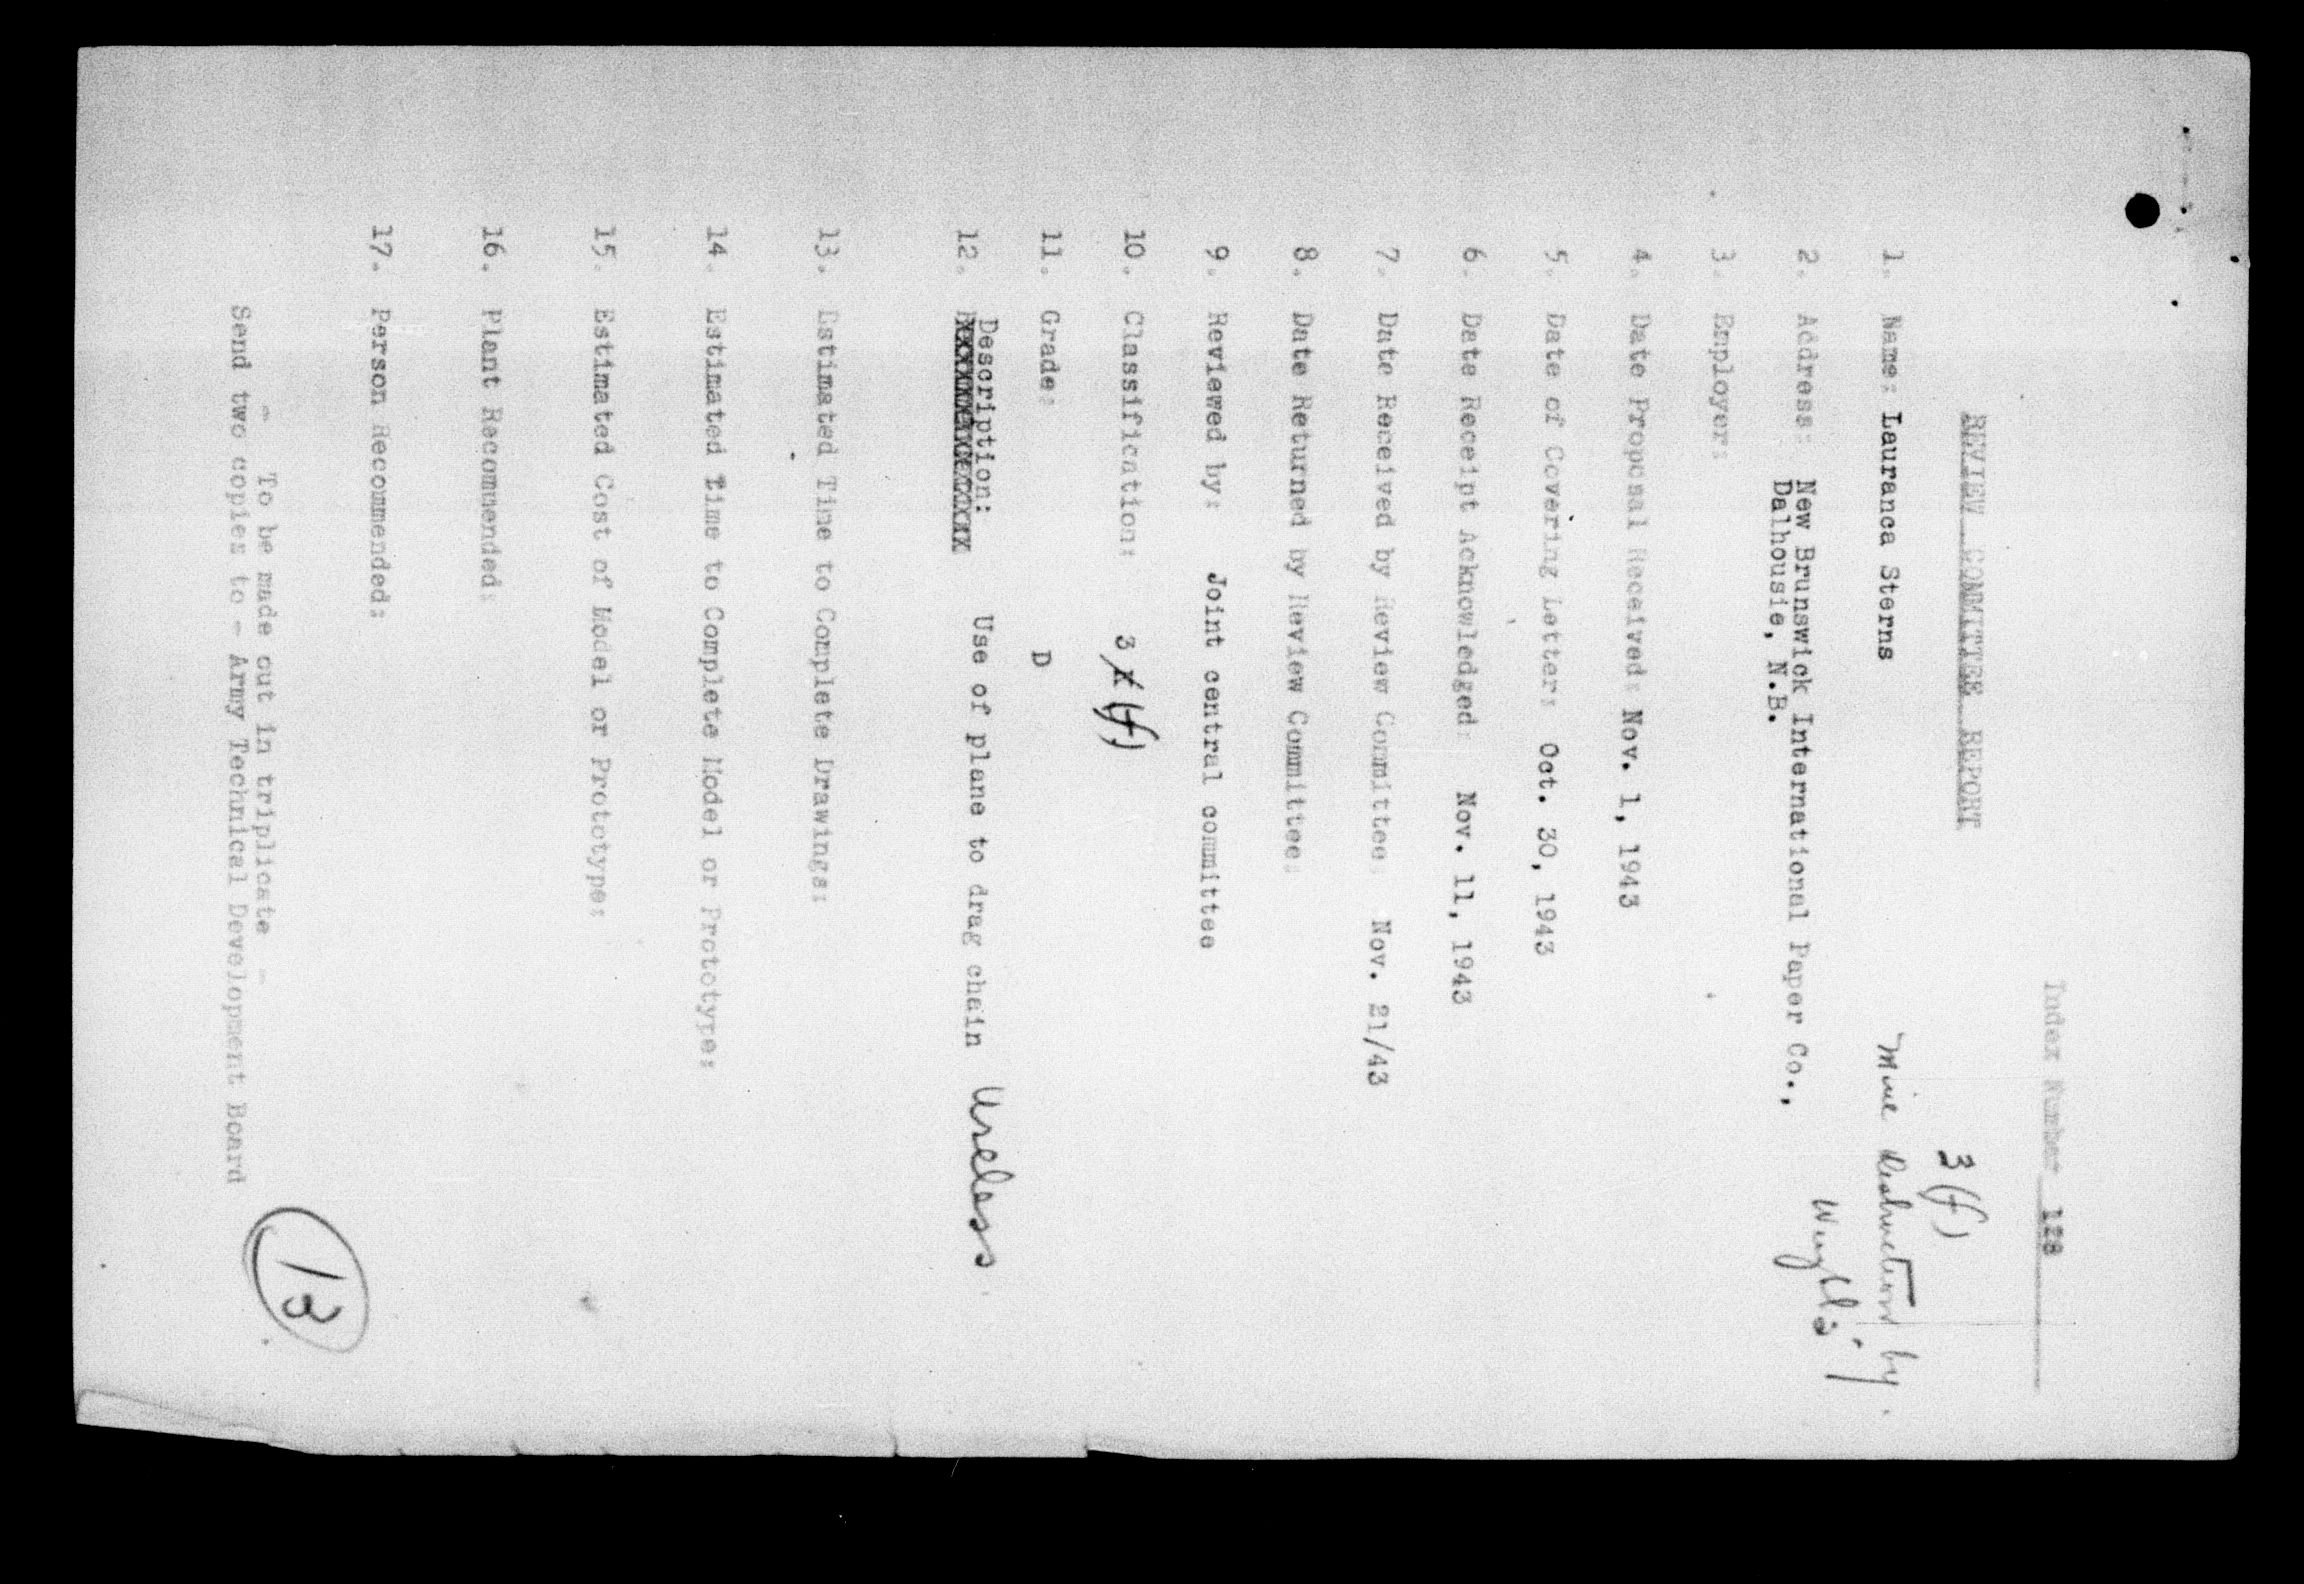 Index Number 128
REVIEW COMMITTEE REPORT
3(f)
Mine destruction by
Weights.
1. Name: Lauranca Sterns
2. Address: New Brunswick International Paper Co.,
Dalhousie, N.B.
3. Employer:
4. Date Proposal Received: Nov. 1, 1943
5. Date of Covering Letter: Oct. 30, 1943
6. Date Receipt Acknowledged: Nov. 11, 1943
7. Date Received by Review Committee: Nov. 21/43
8. Date Returned by Review Committee:
9. Reviewed by: Joint central committee
10. Classification: 3 (f)
11. Grade: D
Description:
12. Use of plane to drag chain Useless
13. Estimated Time to Complete Drawings:
14. Estimated Time to Complete Model or Prototype:
15. Estimated Cost of Model or Prototype:
16. Plant Recommended:
17. Person Recommended:
- To be made out in triplicate -
Send two copies to - Army Technical Development Board
13